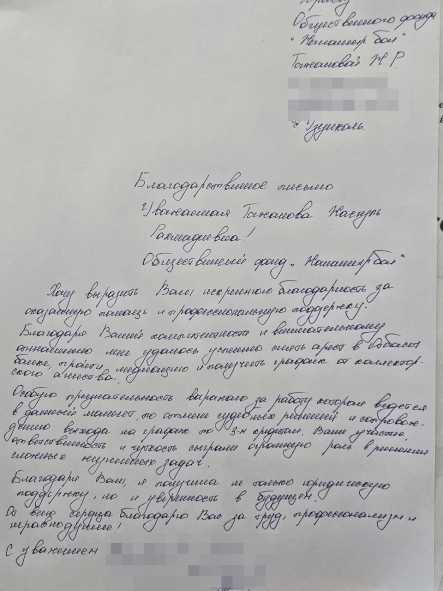 Общественного фонда
"Қамқор бол"
Тажановой Н Р
с Узунколь
Благодарственное письмо
Уважаемая Тажанова Насгуль
Рахмадиевна!
Общественный фонд
Хочу выразить Вам искреннюю благодарность за
оказанную помощь и профессиональную поддержку.
Благодаря Вашей компетентности и внимательному
отношению мне удалось успешно снять арест в Отбасы
банке, пройти медиацию и получить графики от коллектор-
ского агентства.
Особую признательность выражаю за работу которая ведется
в данный момент по отмене судебных решений и сопровож-
дению выхода на графики по 3-м кредитам. Ваше участие,
ответственность и чуткость сыграли огромную роль в решении
сложных жизненных задач.
Благодаря Вам, я получила не только юридическую
поддержку, но и уверенность в будущем.
От всего сердца благодарю Вас за труд, профессионализм и
неравнодушие!
С уважением